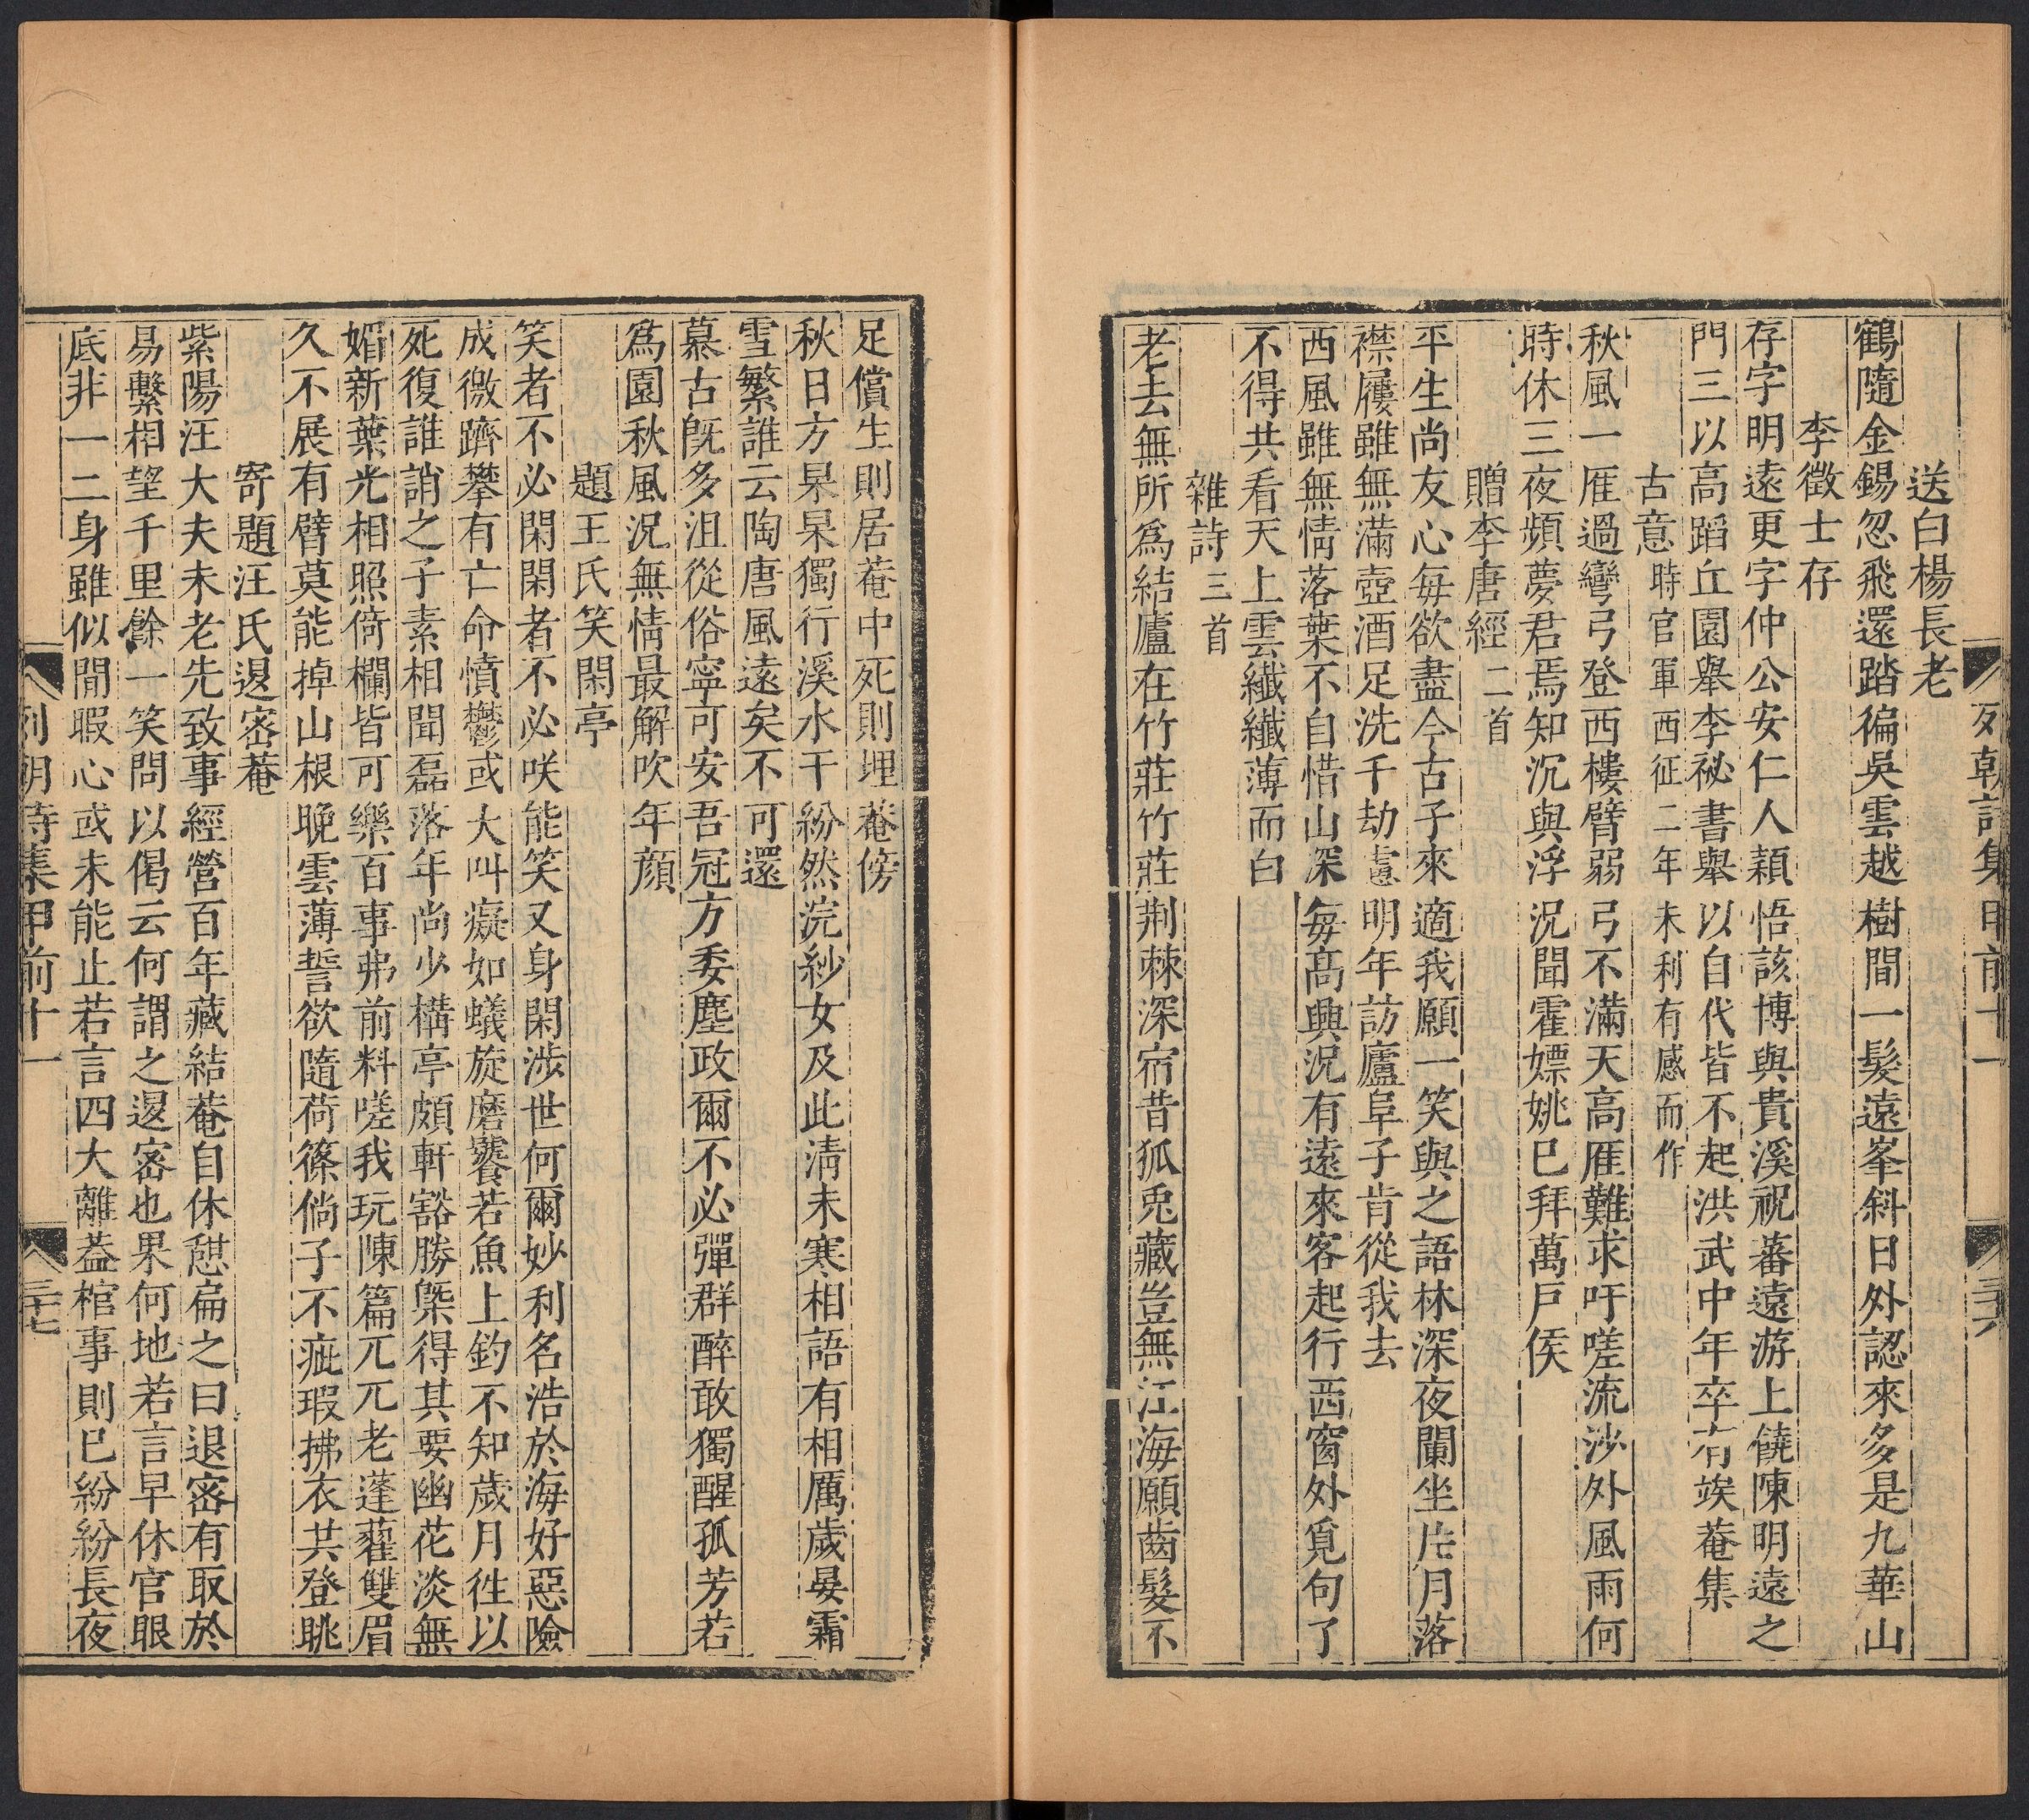 列朝詩集甲前十一
三十六
送白楊長老
鶴隨金錫忽飛還踏徧吳雲越樹間一髮遠峯斜日外認來多是九華山
李徵士存
存字明遠更字仲公安仁人穎悟該博與貴溪祝蕃遠游上饒陳明遠之
門三以高蹈丘園舉李祕書舉以自代皆不起洪武中年卒有竢菴集
古意時官軍西征二年未利有感而作
秋風一雁過彎弓登西樓臂弱弓不滿天高雁難求吁嗟流沙外風雨何
時休三夜頻夢君焉知沉與浮況聞霍嫖姚巳拜萬戸侯
贈李唐經二首
平生尚友心每欲盡今古子來適我願一笑與之語林深夜闌坐片月落
襟屨雖無滿壺酒足洗千劫慮明年訪廬阜子肯從我去
西風雖無情落葉不自惜山深每高興況有遠來客起行西窗外覓句了
不得共看天上雲纖纖薄而白
雜詩三首
老去無所爲結廬在竹莊竹莊荆棘深宿昔狐兎藏豈無江海願齒髮不
足償生則居菴中死則埋菴傍
秋日方杲杲獨行溪水干紛然浣紗女及此淸未寒相語有相厲歲晏霜
雪繁誰云陶唐風遠矣不可還
慕古旣多沮從俗寧可安吾冠方委塵政爾不必彈群醉敢獨醒孤芳若
爲園秋風況無情最解吹年顏
題王氏笑閑亭
笑者不必閑閑者不必咲能笑又身閑涉世何爾妙利名浩於海好惡險
成徼躋攀有亡命憤鬱或大叫癡如蟻旋磨饕若魚上釣不知歲月徃以
死復誰誚之子素相聞磊落年尚少構亭頗軒豁勝槩得其要幽花淡無
媚新葉光相照倚欄皆可樂百事弗前料嗟我玩陳篇兀兀老蓬藋雙眉
久不展有臂莫能掉山根晚雲薄誓欲隨荷篠倘子不疵瑕拂衣共登眺
寄題汪氏退密菴
紫陽汪大夫未老先致事經營百年藏結菴自休憇扁之曰退密有取於
易繫相望千里餘一笑問以偈云何謂之退密也果何地若言早休官眼
底非一二身雖似閒暇心或未能止若言四大離葢棺事則巳紛紛長夜
列朝詩集甲前十一
三十七